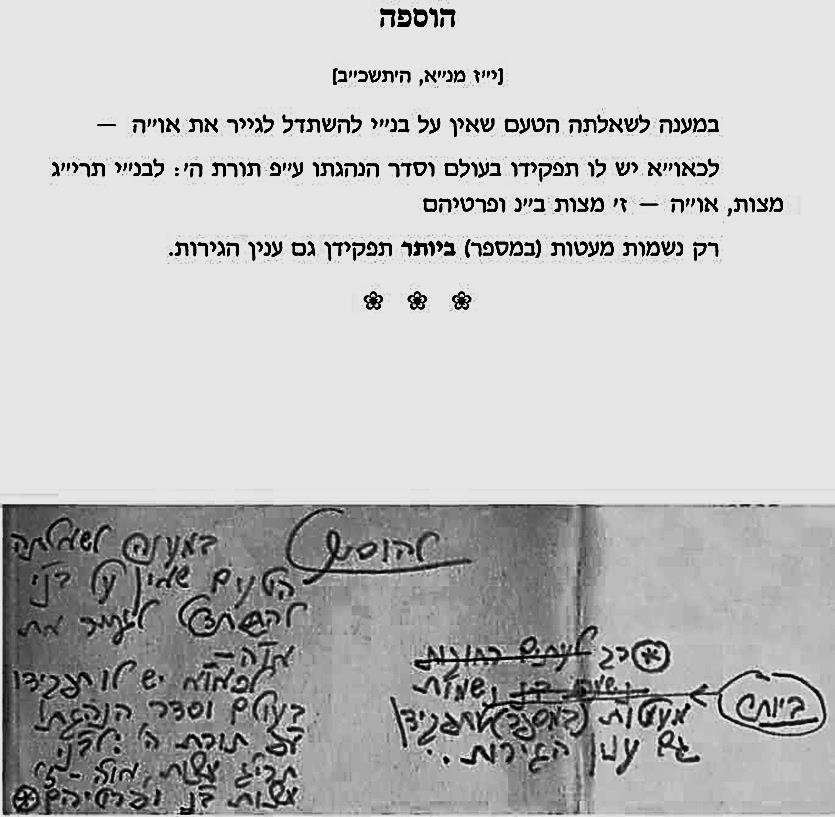 הוספה
[י״ז מנ״א, ה׳תשכ״ב]
במענה לשאלתה הטעם שאין על בנ״י להשתדל לגייר את או״ה —
לכאו״א יש לו תפקידו בעולם וסדר הנהגתו ע״פ תורת ה׳: לבנ״י תרי״ג
מצות, או״ה — ז׳ מצות ב״נ ופרטיהם
רק נשמות מעטות (במספר) ביותר תפקידן גם ענין הגירות.
להוסיף
במענה לשאלתה
הטעם שאין על בנ״י
להשתדל לגייר את
או״ה —
לכאו״א יש לו תפקידו
בעולם וסדר הנהגתו
ע״פ תורת ה׳: לבנ״י
תרי״ג מצות, או״ה - ז׳
מצות ב״נ ופרטיהם
רק לעתים רחוקות
נשמות
מעטות (במספר) תפקידן
גם ענין הגירות.
ביותר